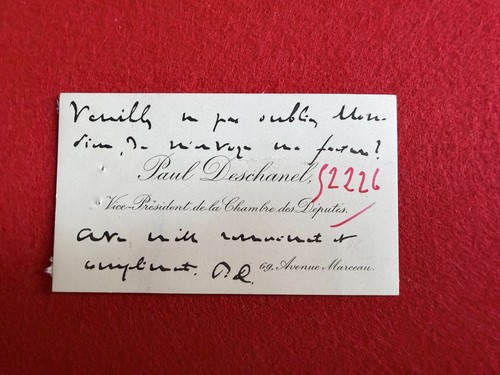 Veuillez ne pas oublier, Mon-
sieur, de m'envoyer ma facture?
Paul Deschanel,
52226
Vice-Président de la Chambre des Députés.
Avec mille remerciements et
compliments. P.D.
69, Avenue Marceau.